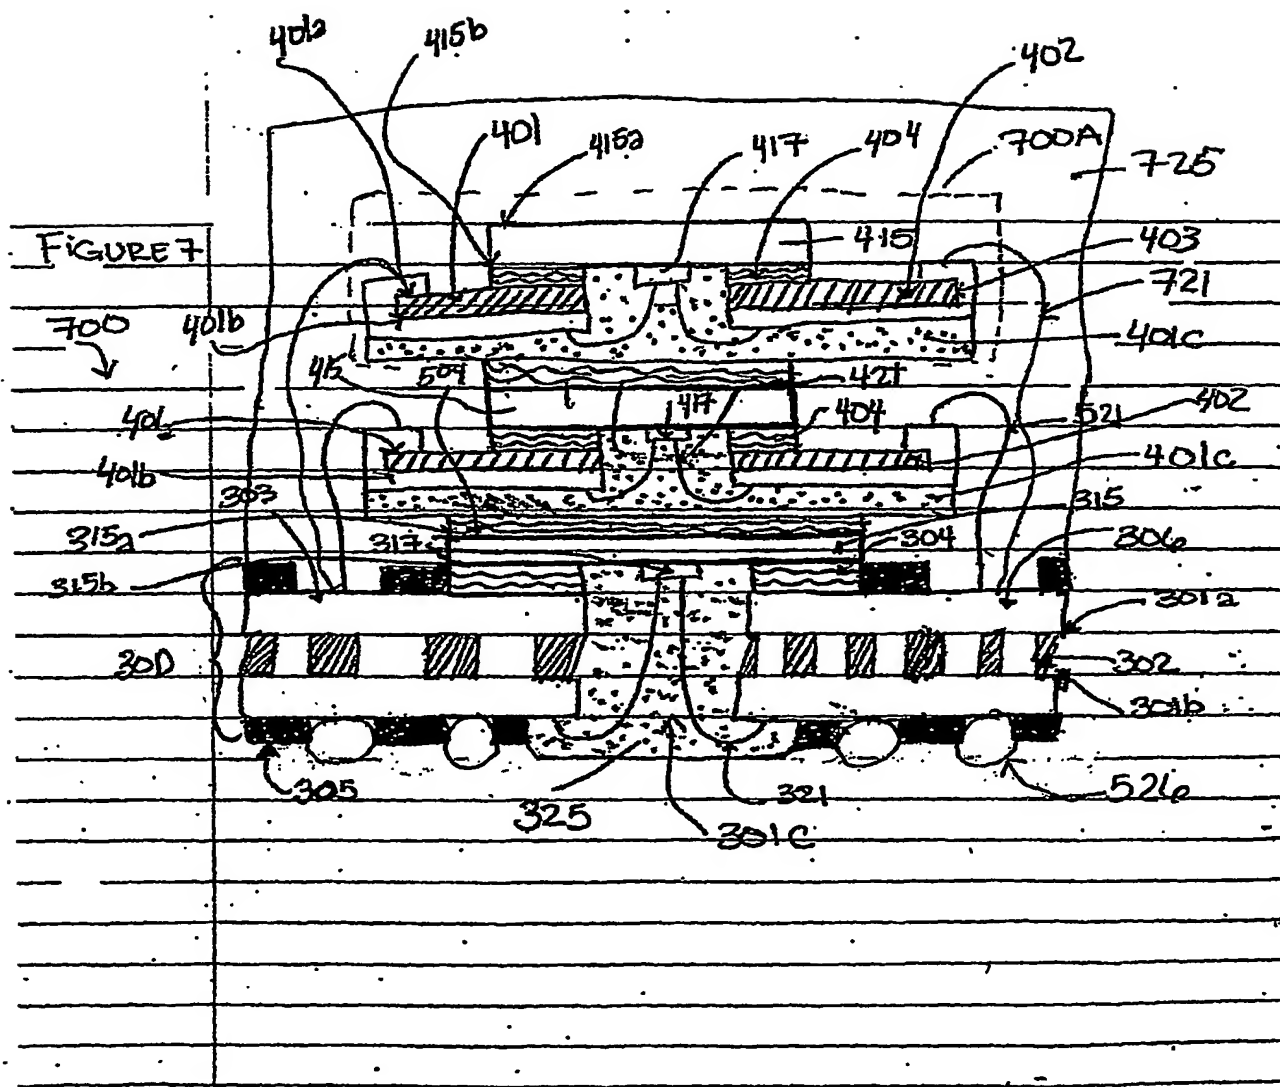 401a
415b
402
401
415a
417
404
700A
725
FIGURE 7
415
403
700
401b
721
401C
415
504
421
417
404
402
401
521
401b
401C
303
315
315a
317
304
306
315b
301a
300
302
301b
305
325
321
301C
526